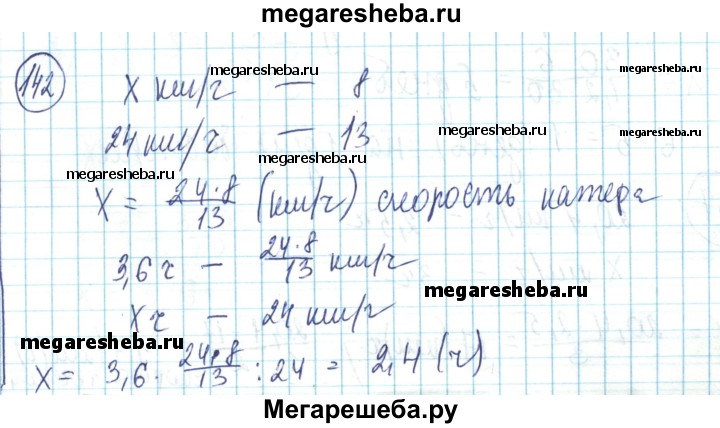 megaresheba.ru
142
megaresheba.ru
x км/ч — 8
24 км/ч — 13
megaresheba.ru
megaresheba.ru
megaresheba.ru
x = 24·8/13 (км/ч) скорость катера
3,6 ч — 24·8/13 км/ч
megaresheba.ru
x ч — 24 км/ч
megaresheba.ru
x = 3,6 · 24·8/13 : 24 = 2,4 (ч)
Мегарешеба.ру